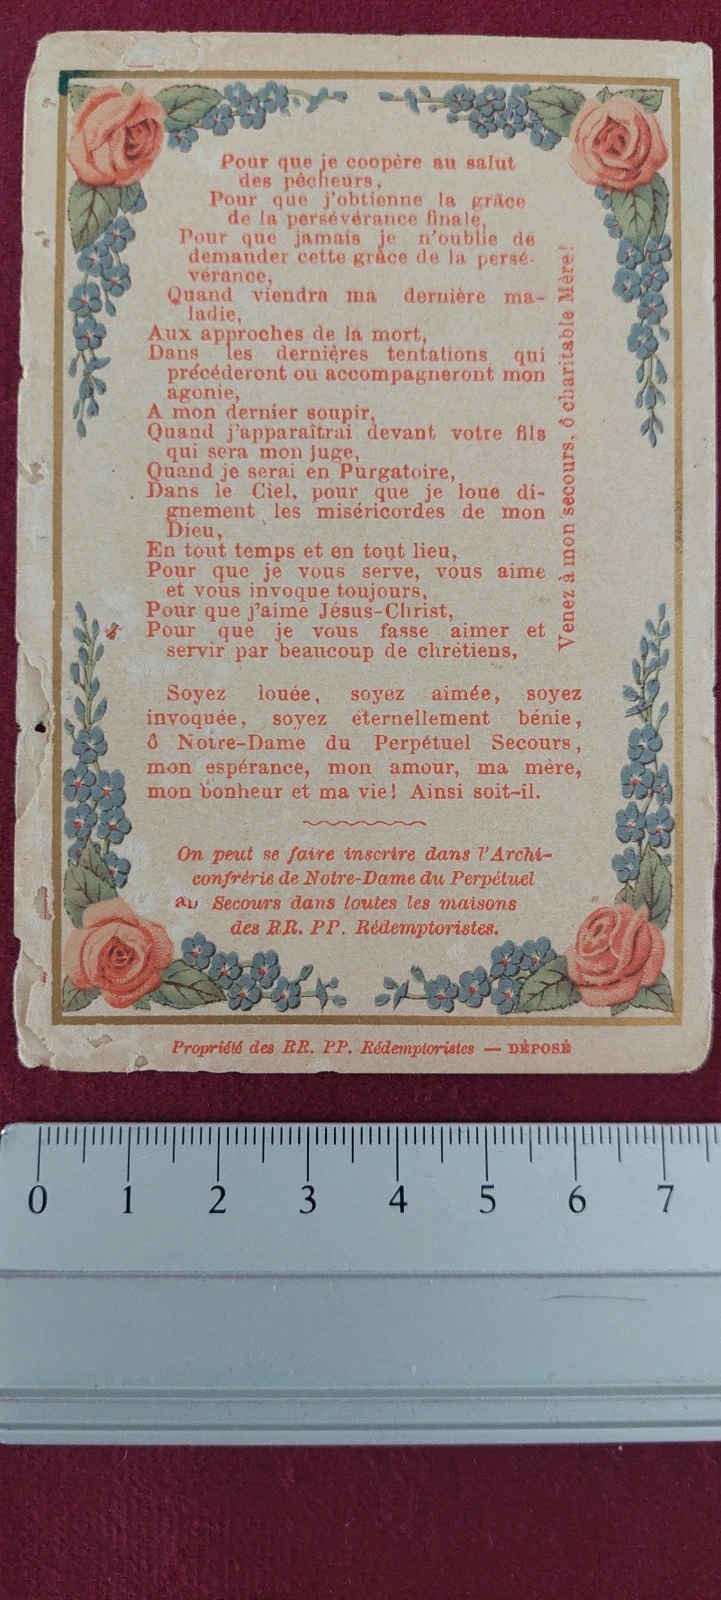 Pour que je coopère au salut
des pécheurs,
Pour que j'obtienne la grâce
de la persévérance finale,
Pour que jamais je n'oublie de
demander cette grâce de la persé-
vérance,
Quand viendra ma dernière ma-
ladie,
Aux approches de la mort,
Dans les dernières tentations qui
précéderont ou accompagneront mon
agonie,
A mon dernier soupir,
Quand j'apparaîtrai devant votre fils
qui sera mon juge,
Quand je serai en Purgatoire,
Dans le Ciel, pour que je loue di-
gnement les miséricordes de mon
Dieu,
En tout temps et en tout lieu,
Pour que je vous serve, vous aime
et vous invoque toujours,
Pour que j'aime Jésus-Christ,
Pour que je vous fasse aimer et
servir par beaucoup de chrétiens,
Venez à mon secours, ô charitable Mère!
Soyez louée, soyez aimée, soyez
invoquée, soyez éternellement bénie,
ô Notre-Dame du Perpétuel Secours,
mon espérance, mon amour, ma mère,
mon bonheur et ma vie! Ainsi soit-il.
On peut se faire inscrire dans l'Archi-
confrérie de Notre-Dame du Perpétuel
au Secours dans toutes les maisons
des RR. PP. Rédemptoristes.
Propriété des RR. PP. Rédemptoristes — DÉPOSÉ
0 1 2 3 4 5 6 7